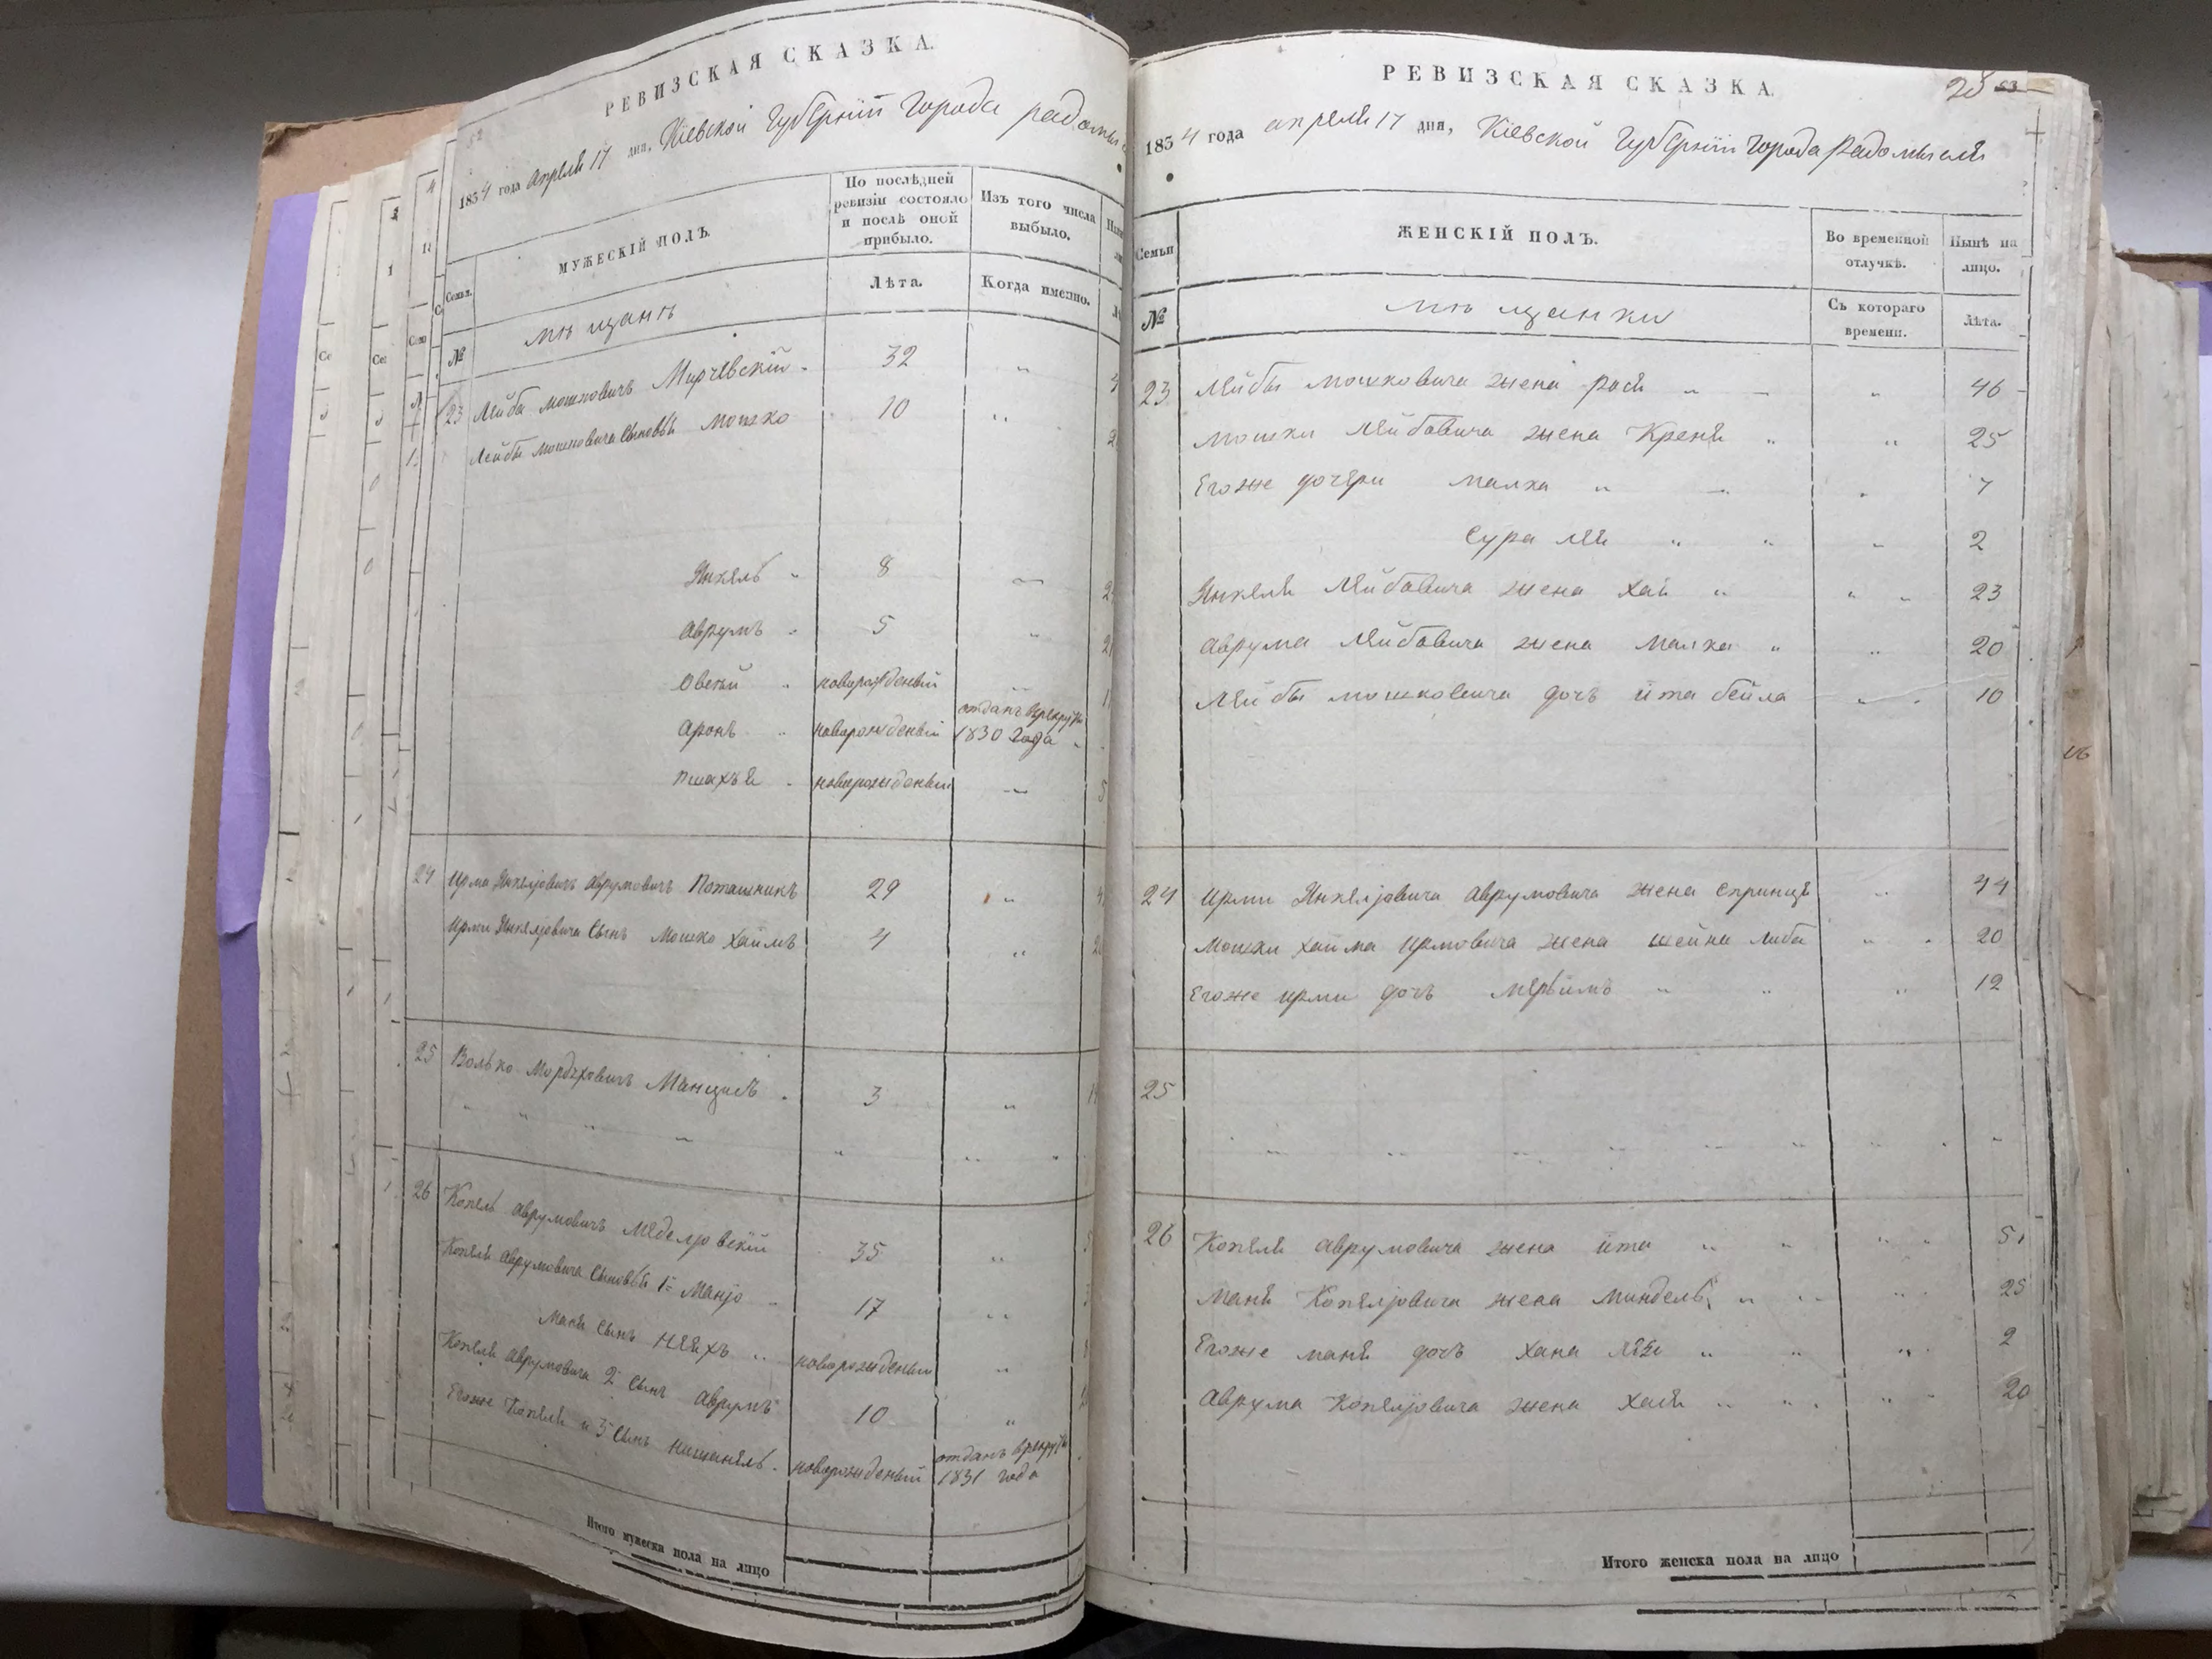 РЕВИЗСКАЯ СКАЗКА.
1834 года апреля 17 дня, Кіевской Губерніи города радомы
МУЖЕСКІЙ ПОЛЪ.
По послѣдней ревизіи состояло и послѣ оной прибыло.
Изъ того числа выбыло.
Семьи.
Лѣта.
Когда именно.
№
мѣщанъ
23 Лейба мошковичъ Мирчевскій 32 "
Лейбы мошковича сыновья мошко 10 "
Янкель " 8 "
аврумъ " 5 "
Овсѣй " новорожденый
аронъ " новорожденый отданъ врекруты 1830 года
пшахъя новорожденый "
24 Ирма Янкелювичъ аврумовичъ Поташникъ 29 "
Ирми Янкелювича сынъ мошко хаимъ 4 "
25 Волько Мордховичъ 3 "
26 Копель аврумовичъ 35 "
Копеля аврумовича сыновья 1й Маню 17 "
Маня сынъ новорожденый "
Копеля аврумовича 2й сынъ аврумъ 10 "
Егоже Копеля и 3й сынъ новорожденый отданъ врекруты 1831 года
Итого мужеска пола на лицо
РЕВИЗСКАЯ СКАЗКА.
28 53
1834 года апреля 17 дня, Кіевской Губерніи города Радомысля
Семьи
ЖЕНСКІЙ ПОЛЪ.
Во временной отлучкѣ.
Нынѣ на лицо.
№
мѣщанки
Съ котораго времени.
Лѣта.
23 Лейбы мошковича жена рася " " 46
мошки Лейбовича жена Креня " " 25
Егоже дочери малка " " 7
Сура лея " " " 2
Янкеля Лейбовича жена хая " " " 23
аврума Лейбовича жена малка " " 20
Лейбы мошковича дочь йта бейла " 10
24 Ирми Янкелювича аврумовича жена спринця " 44
Мошки хаима Ирмовича жена шейна либа " 20
Егоже ирми дочь мерьимъ " " " 12
25
26 Копеля аврумовича жена йта " " " 51
Маня Копелювича жена миндель " " " 25
Егоже маня дочь хана " " " 2
Аврума Копелювича жена хася " " " 20
Итого женска пола на лицо